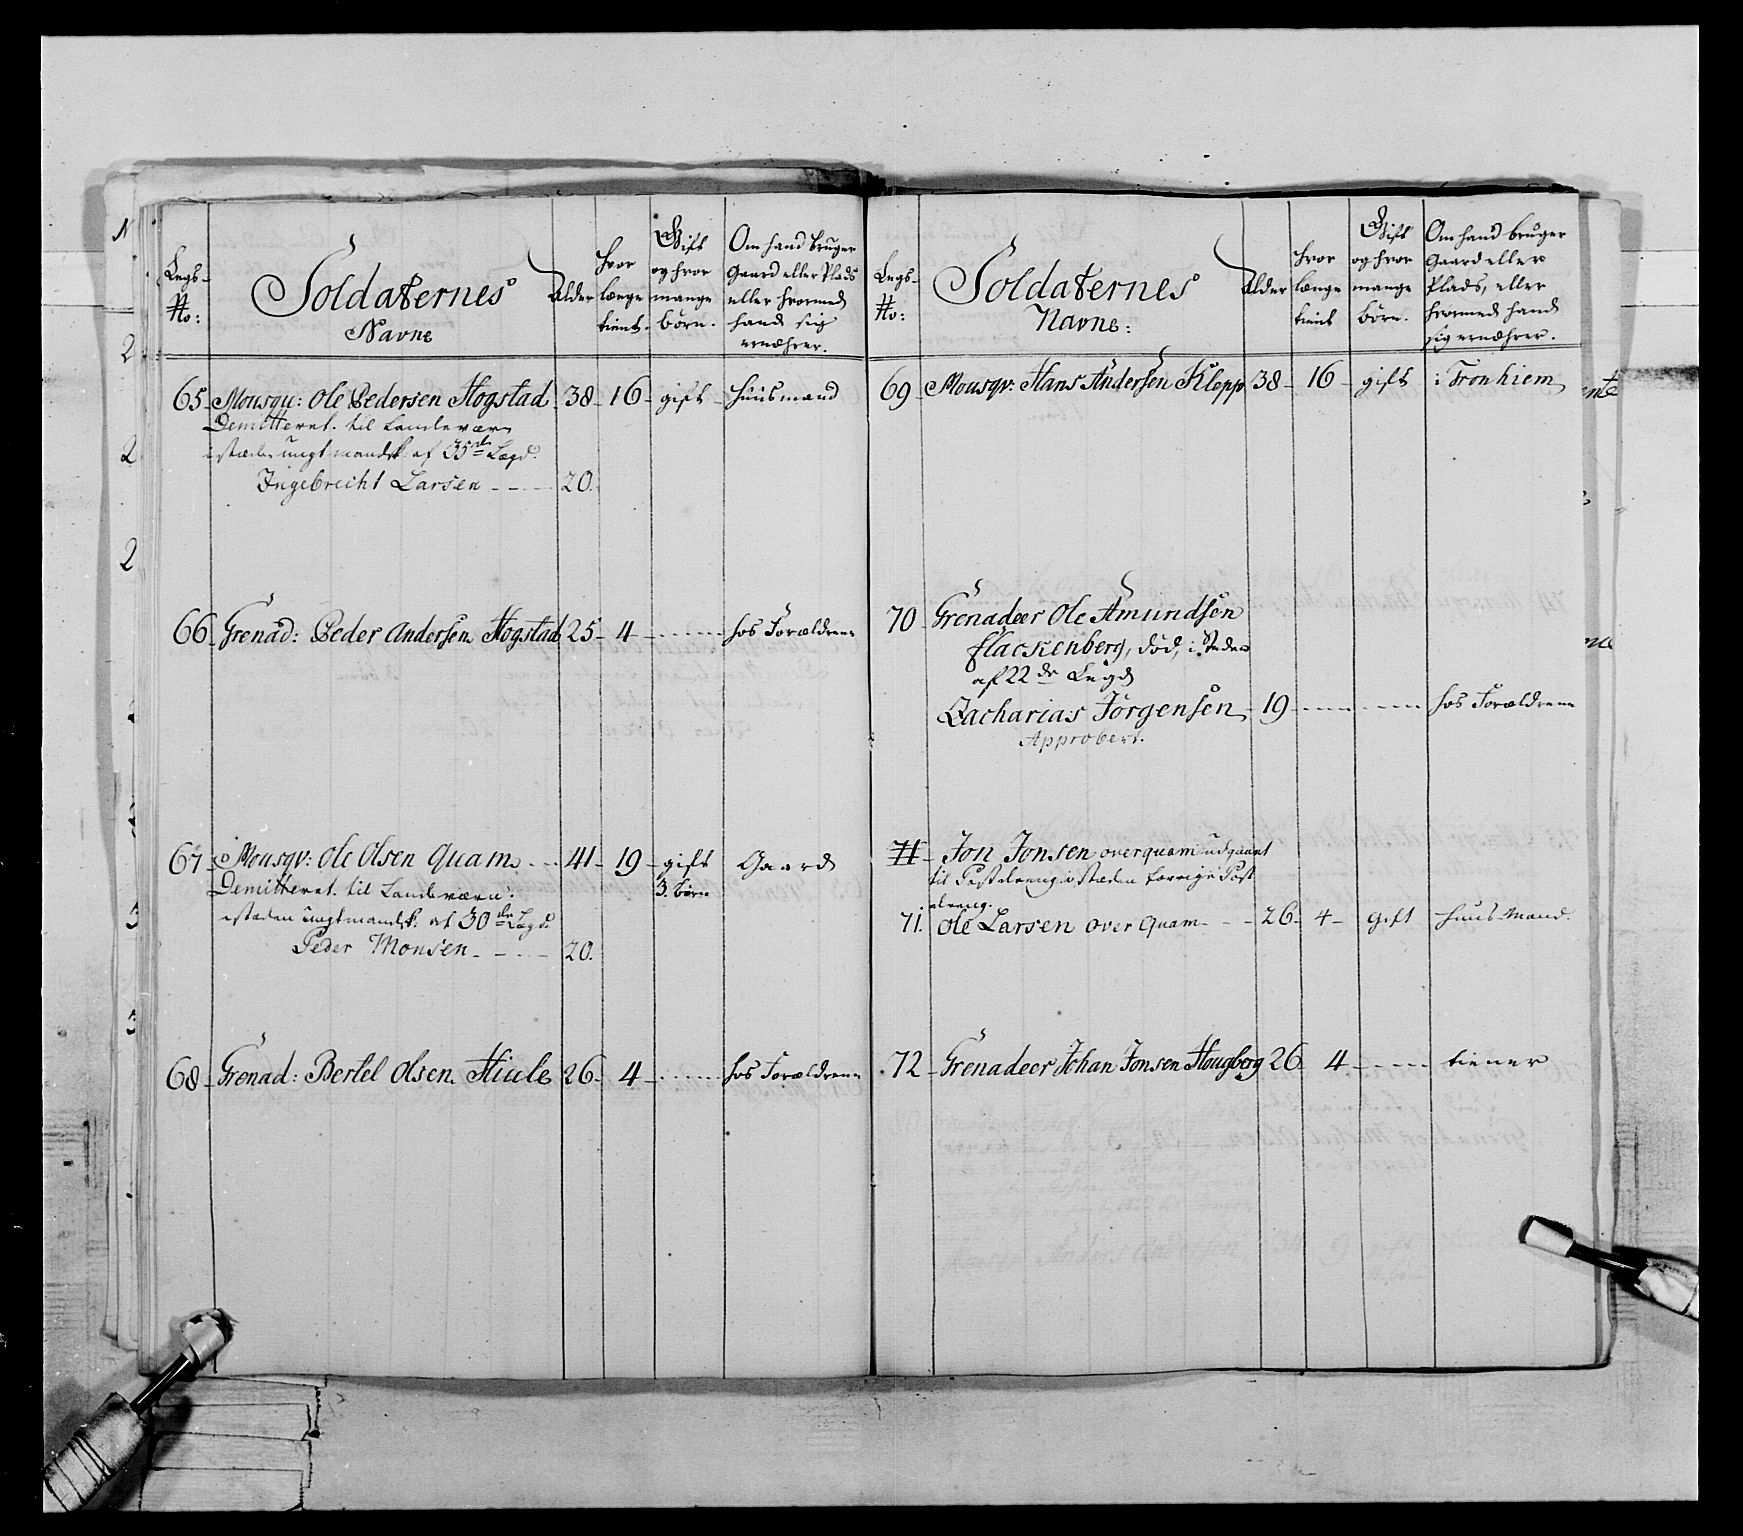 Legs No: Soldaternes Navne Alder hvor længe tient. Gift og hvor mange börn. Om hand bruger Gaard eller Plads eller hvormed hand sig ernæhrer.
65 Mousqu: Ole Pedersen Hogstad 38 16 gift huusmand
Demitteret til Landeværn
istæden ungt mandsk: af 35de Lægd:
Ingebrecht Larsen 20.
66 Grenad: Peder Andersen Hogstad 25 4 hos Forældrene
67 Mousqv: Ole Olsen Quam 41 19 gift 3. börn Gaard
Demitteret til Landeværn:
istæden ungt mandsk: af 30de Lægd:
Peder Monsen 20.
68 Grenad: Bertel Olsen Hiule 26 4 hos Forældrene
Legs No: Soldaternes Navne: Alder hvor længe tient Gift og hvor mange börn. Om hand bruger Gaard eller Plads, eller hvormed hand sig ernæhrer.
69 Mousqv: Hans Andersen Klepp 38 16 gift i Tronhiem
70 Grenadeer Ole Amundsen
flackenberg, död, i Steden
af 22de Legd
Zacharias Jörgensen 19 hos Forældrene
Approbert.
71 Jon Jonsen overquam udgaaet
til Postdreng istæden forrige Post
dreng.
71. Ole Larsen over Quam 26 4 gift huus-Mand.
72 Grenadeer Johan Jonsen Hougberg 26 4 tiener